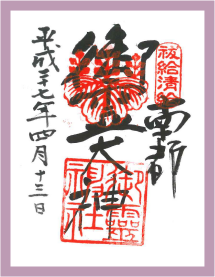 祓給清給
南都
御霊大神
御靈神社
平成二十七年四月十三日